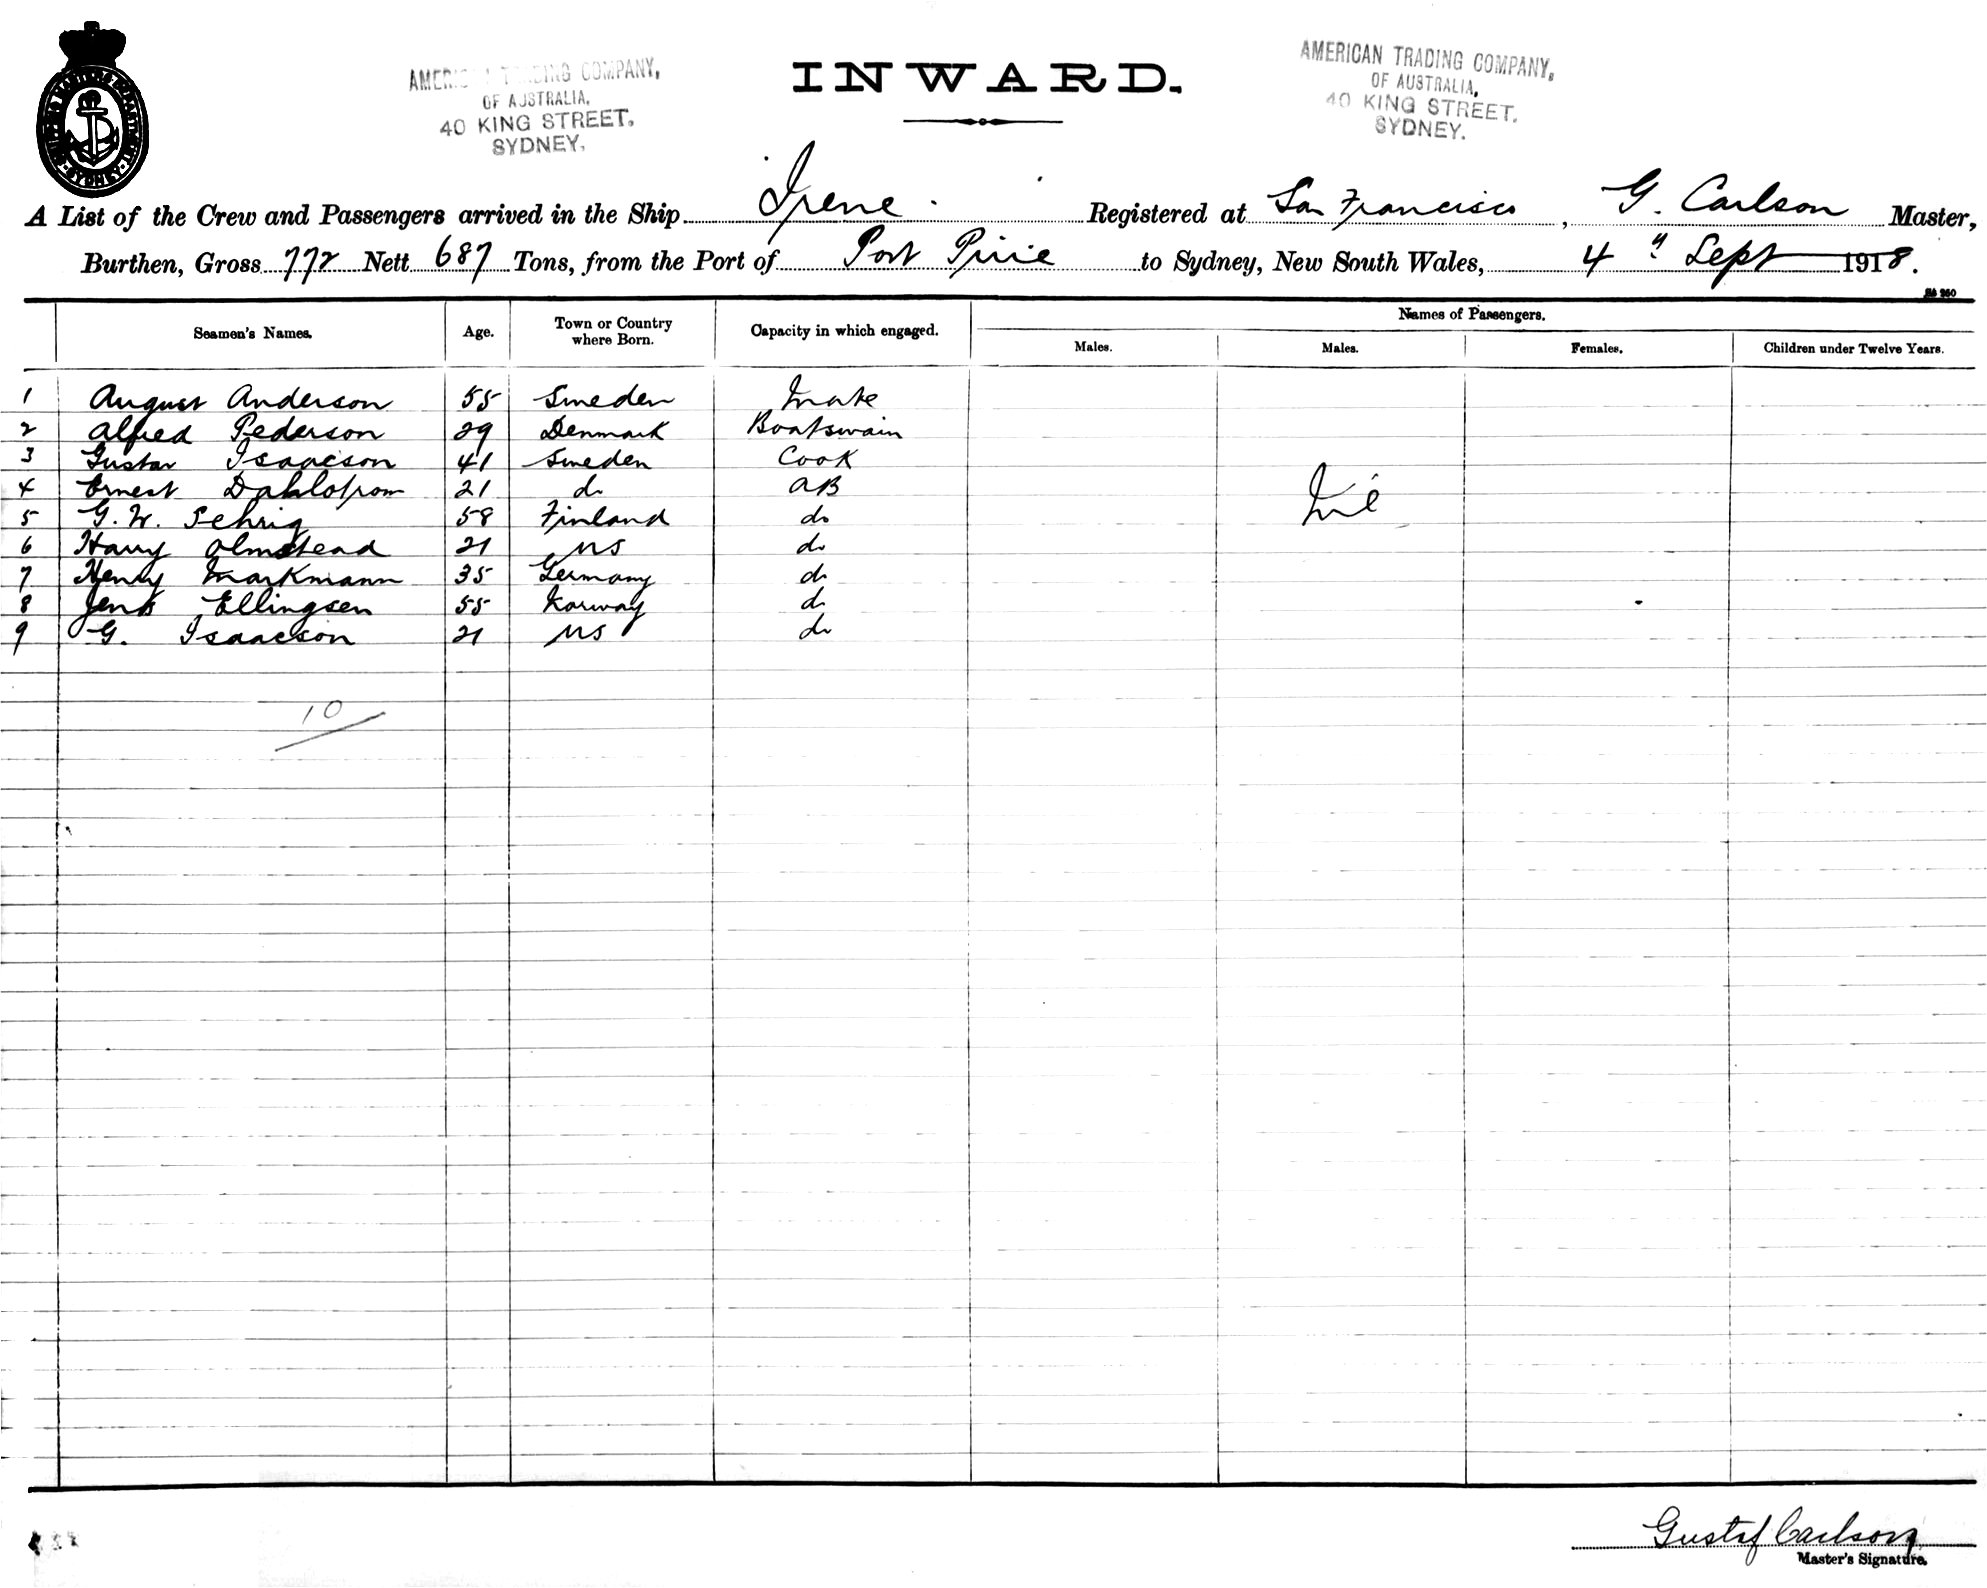 INWARD.
AMERIC TRADING COMPANY,
OF AUSTRALIA,
40 KING STREET.
SYDNEY.
AMERICAN TRADING COMPANY,
OF AUSTRALIA,
40 KING STREET.
SYDNEY.
SYDNEY
A List of the Crew and Passengers arrived in the Ship Irene. Registered at San Francisco, G. Carlson Master,
Burthen, Gross 772 Nett 687 Tons, from the Port of Port Pirie to Sydney, New South Wales, 4" Sept 1918.
Seamen's Names. Age. Town or Country where Born. Capacity in which engaged. Names of Passengers.
Males. Males. Females. Children under Twelve Years.
1 August Anderson 55 Sweden Mate
2 Alfred Pederson 29 Denmark Boatswain
3 Gustav Isaacson 41 Sweden Cook
4 Ernest Dahlstrom 21 do AB
5 G. W. Sehrig 58 Finland do
6 Harry Olmstead 21 US do
7 Henry Markmann 35 Germany do
8 Jens Ellingsen 55 Norway do
9 G. Isaacson 21 US do
Nil
10
Gustaf Carlson
Master's Signature.